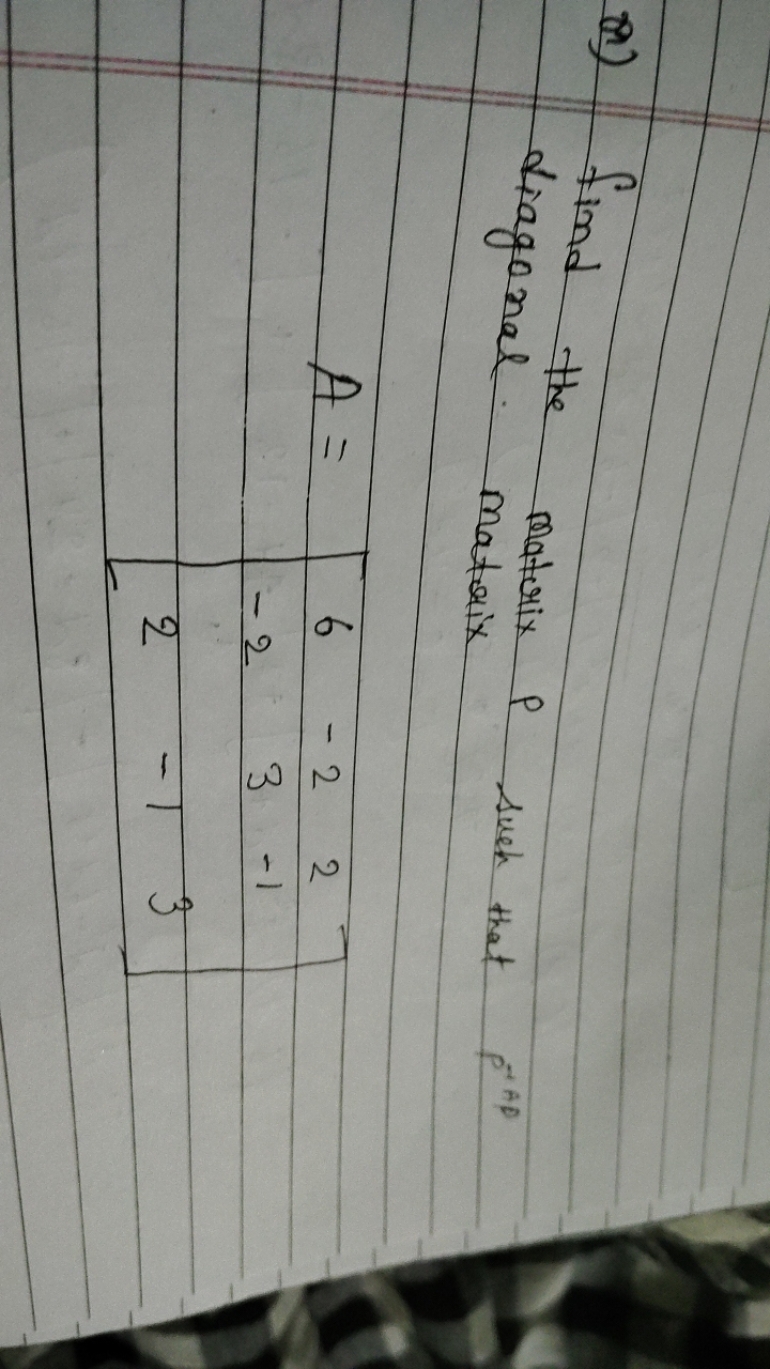 Q) find the matrix P such that P⁻¹AP
diagonal. matrix
A = [ 6 -2 2
-2 3 -1
2 -1 3 ]